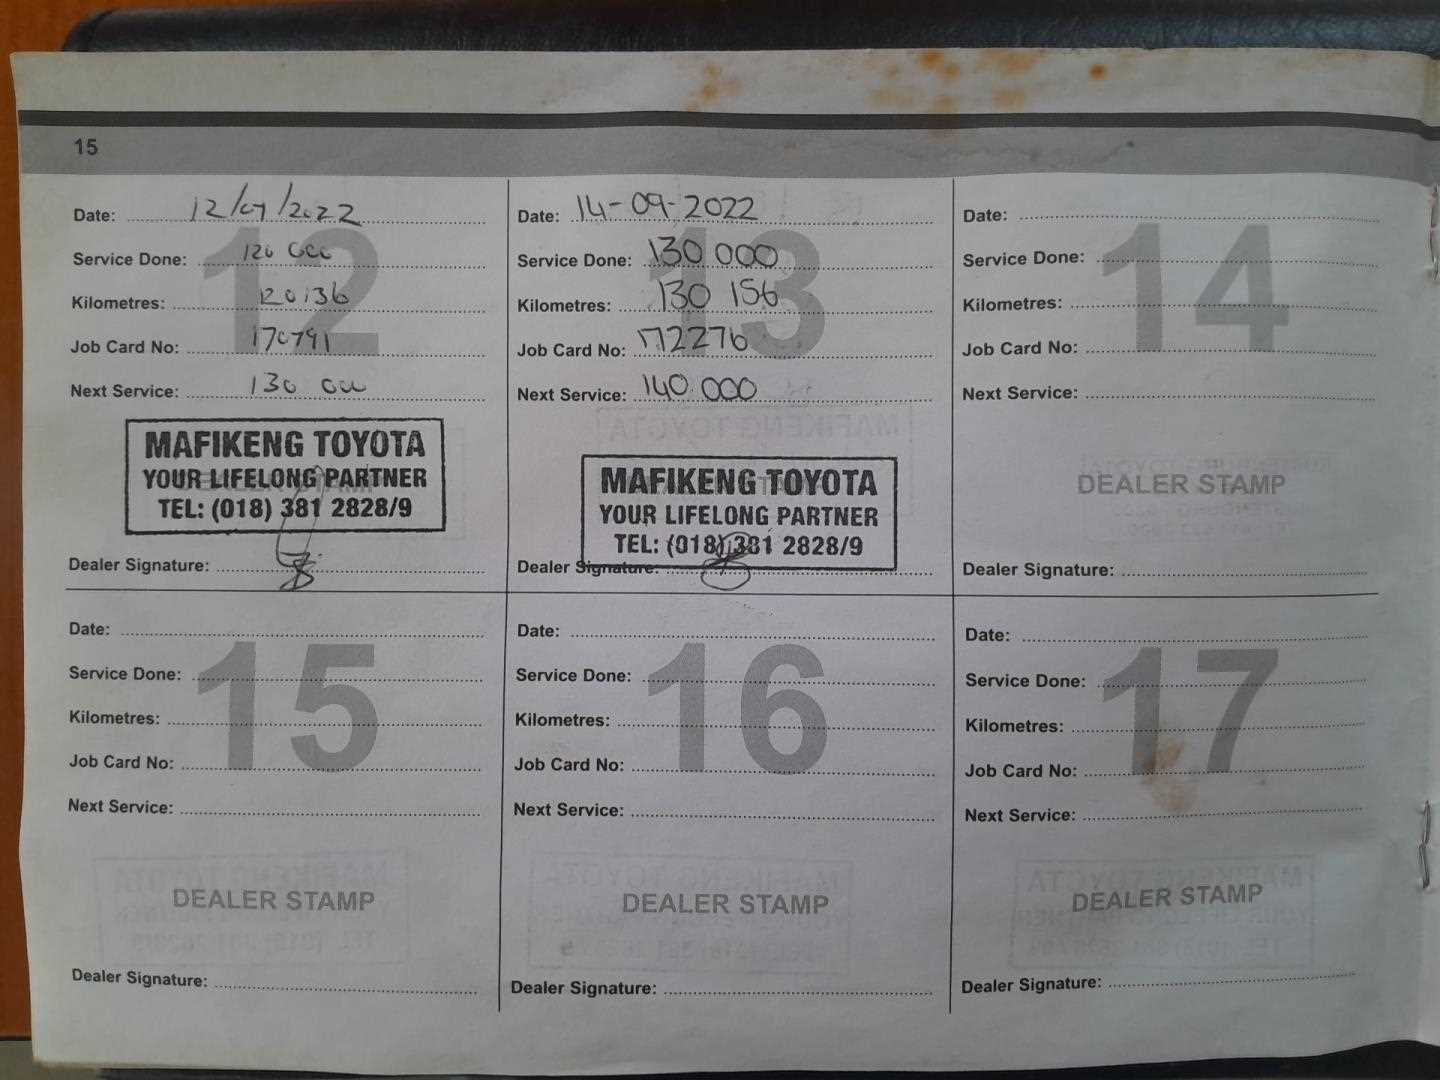 15
12
Date: 12/07/2022
Service Done: 120 000
Kilometres: 120136
Job Card No: 170791
Next Service: 130 000
MAFIKENG TOYOTA
YOUR LIFELONG PARTNER
TEL: (018) 381 2828/9
Dealer Signature:
13
Date: 14-09-2022
Service Done: 130 000
Kilometres: 130 156
Job Card No: 172276
Next Service: 140 000
MAFIKENG TOYOTA
YOUR LIFELONG PARTNER
TEL: (018) 381 2828/9
Dealer Signature:
14
Date:
Service Done:
Kilometres:
Job Card No:
Next Service:
DEALER STAMP
Dealer Signature:
15
Date:
Service Done:
Kilometres:
Job Card No:
Next Service:
DEALER STAMP
Dealer Signature:
16
Date:
Service Done:
Kilometres:
Job Card No:
Next Service:
DEALER STAMP
Dealer Signature:
17
Date:
Service Done:
Kilometres:
Job Card No:
Next Service:
DEALER STAMP
Dealer Signature: